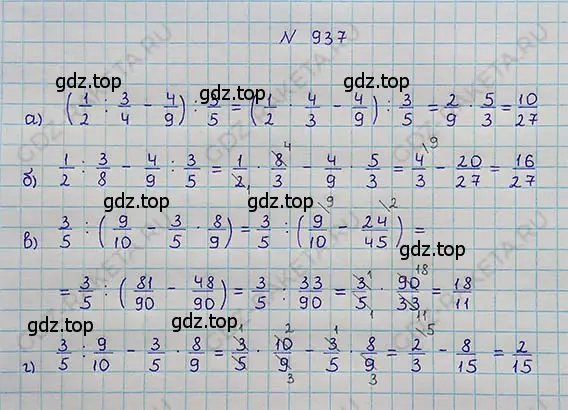 N 937
gdz.top gdz.top
а) (1/2 : 3/4 - 4/9) : 3/5 = (1/2 · 4/3 - 4/9) : 3/5 = 2/9 · 5/3 = 10/27
gdz.top gdz.top
б) 1/2 : 3/8 - 4/9 : 3/5 = 1/2 · 8/3 - 4/9 · 5/3 = 4/3 - 20/27 = 16/27
gdz.top gdz.top
в) 3/5 : (9/10 - 3/5 · 8/9) = 3/5 : (9/10 - 24/45) =
= 3/5 : (81/90 - 48/90) = 3/5 : 33/90 = 3/5 · 90/33 = 18/11
gdz.top gdz.top
г) 3/5 : 9/10 - 3/5 · 8/9 = 3/5 · 10/9 - 3/5 · 8/9 = 2/3 - 8/15 = 2/15